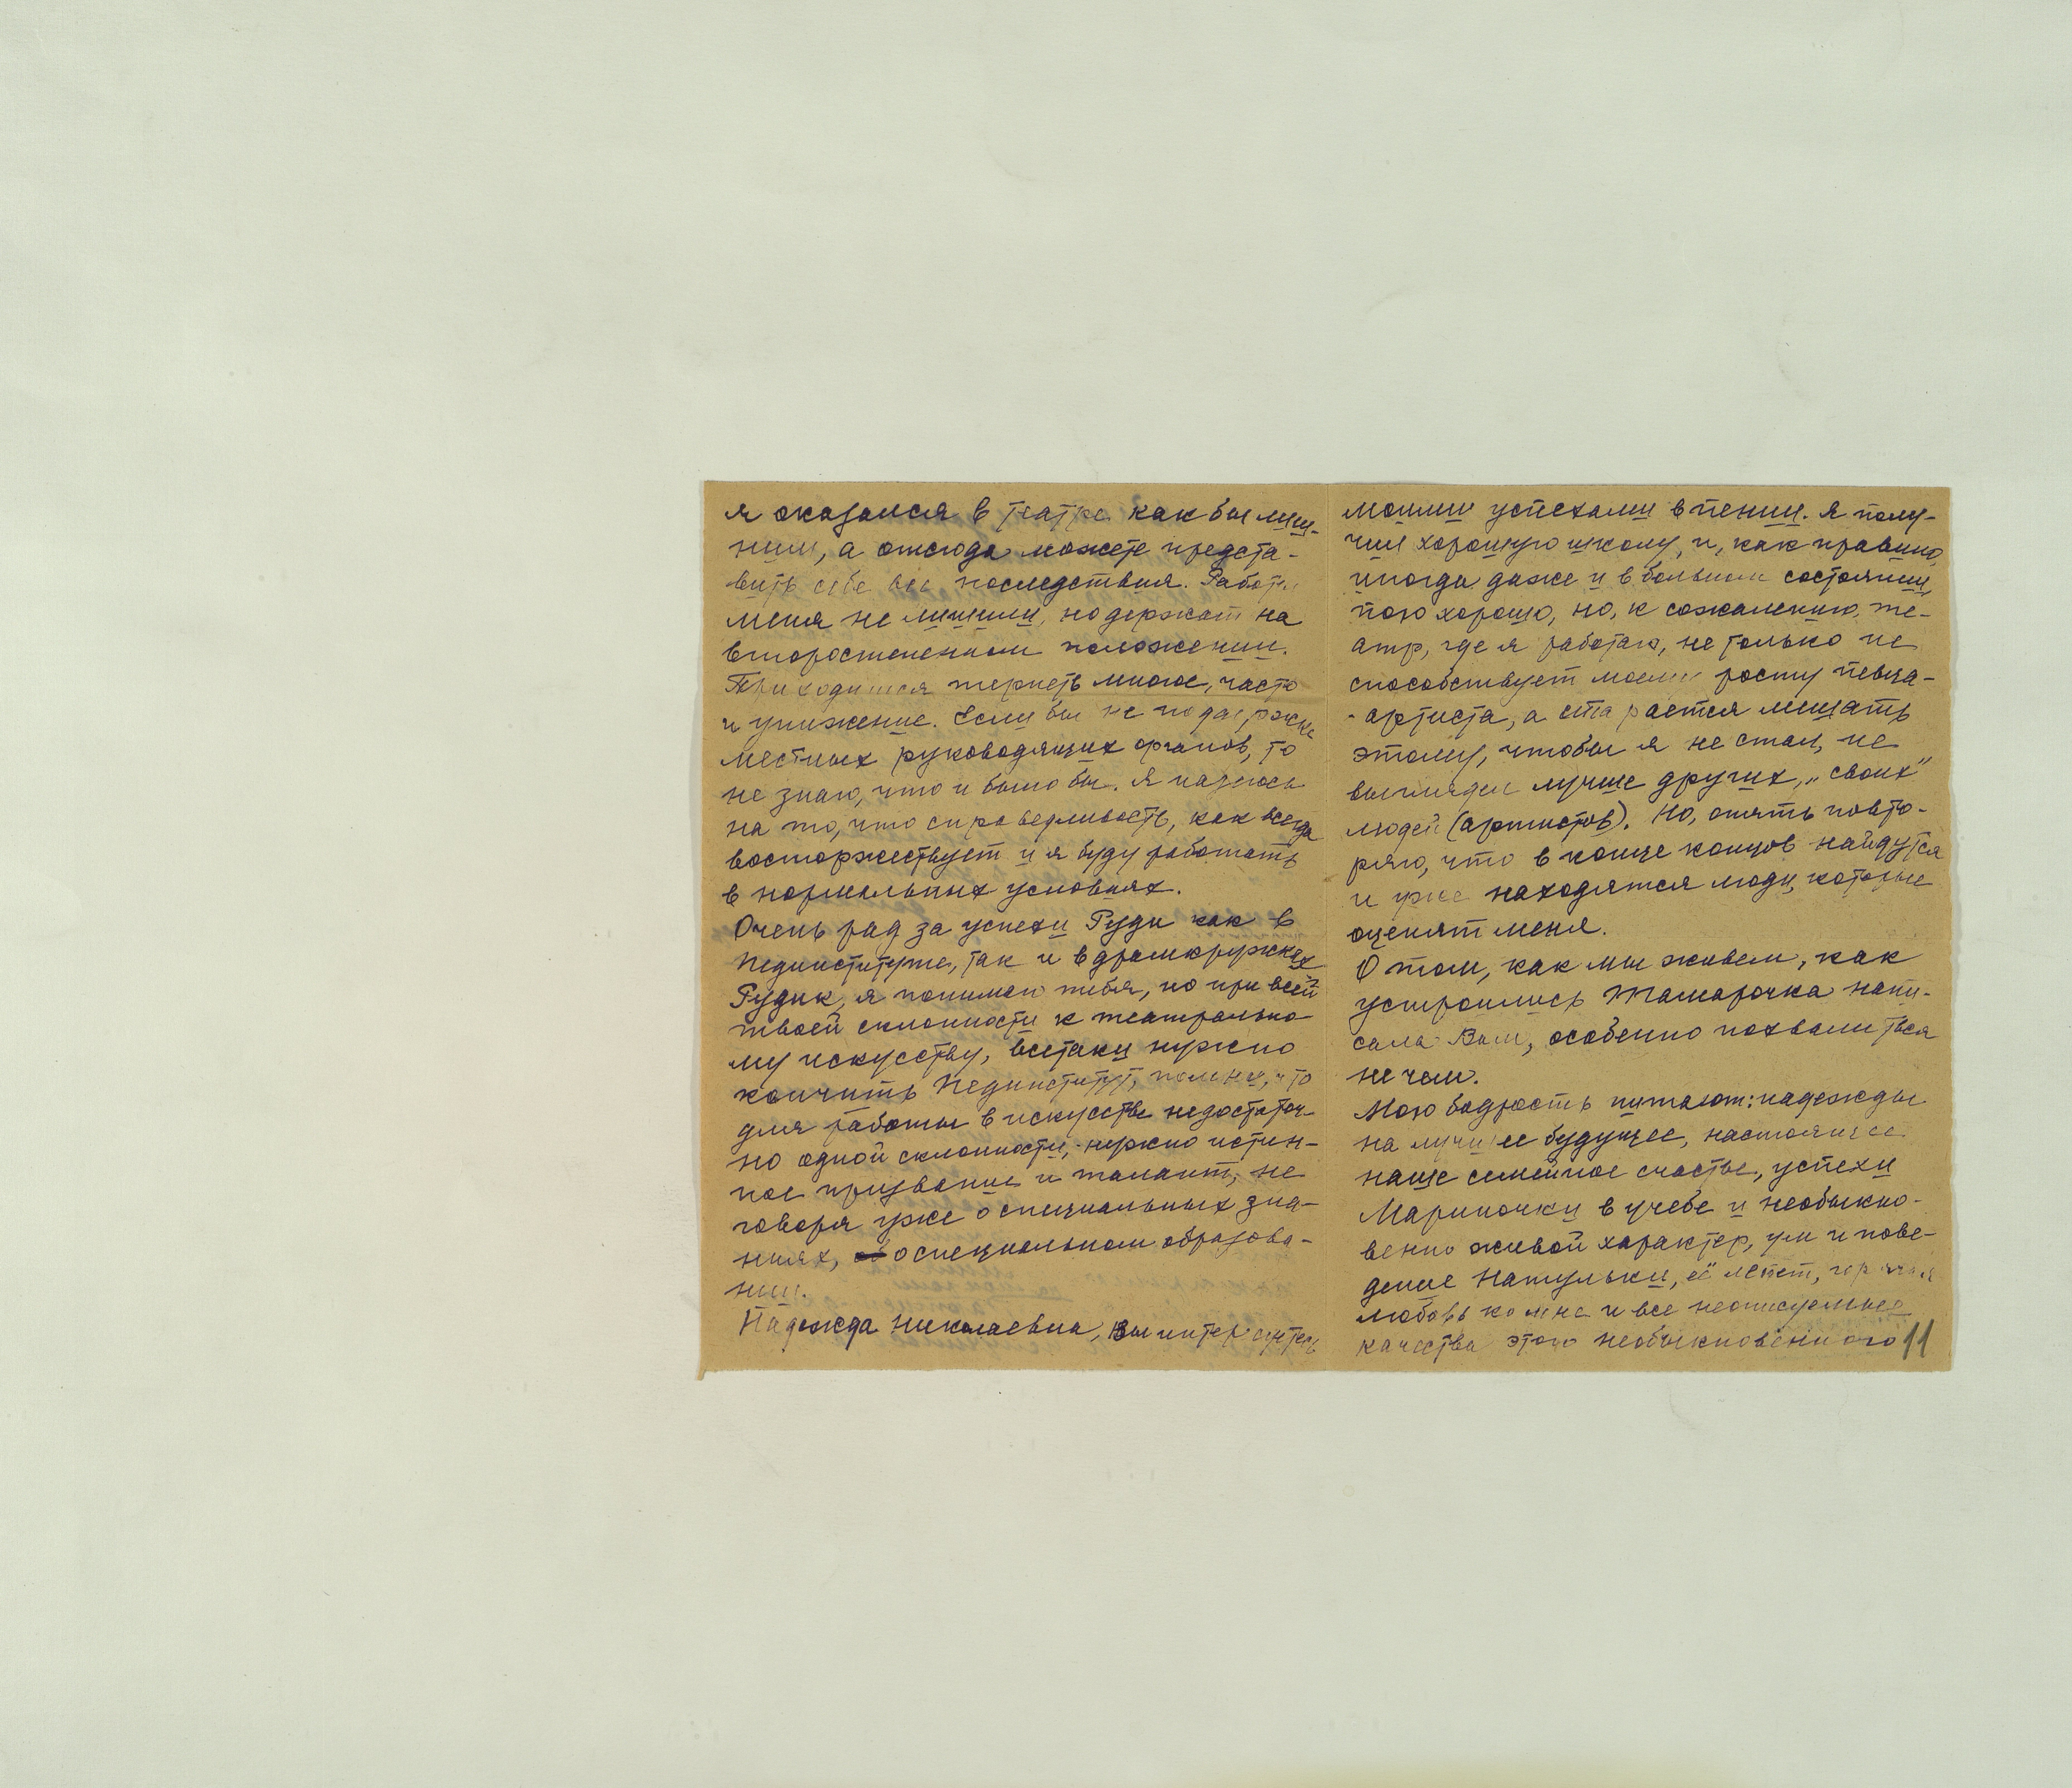 я оказался в театре как бы лиш-
ним, а отсюда можете предста-
вить себе все последствия. Работы
меня не лишили, но держат на
второстепенном положении.
Приходится терпеть многое, часто
и унижение. Если бы не поддержка
местных руководящих органов, то
не знаю, что и было бы. Я надеюсь
на то, что справедливость, как всегда
восторжествует и я буду работать
в нормальных условиях.
Очень рад за успехи Руди как в
Пединституте, так и в драмкружках
Рудик, я понимаю тебя, но при всей
твоей склонности к театрально-
му искусству, всетаки нужно
кончить Пединститут, помни, что
для работы в искусстве недостаточ-
но одной склонности, нужно истин-
ное призвание и талант, не
говоря уже о специальных зна-
ниях, о специальном образова-
нии.
Надежда Николаевна, Вы интересуетесь
моими успехами в пении. Я полу-
чил хорошую школу, и, как правило,
иногда даже и в больном состоянии,
пою хорошо, но, к сожалению, те-
атр, где я работаю, не только не
способствует моему росту певца-
-артиста, а старается мешать
этому, чтобы я не стал, не
выглядел лучше других, „своих"
людей (артистов). Но, опять повто-
ряю, что в конце концов найдутся
и уже находятся люди, которые
оценят меня.
О том, как мы живем, как
устроились Тамарочка напи-
сала Вам, особенно похвалиться
не чем.
Мою бодрость питают: надежды
на лучшее будущее, настоящее
наше семейное счастье, успехи
Мариночки в учебе и необыкно-
венно живой характер, ум и пове-
дение Натульки, её лепет, горячая
любовь ко мне и все неописуемые
качества этого необыкновенного 11